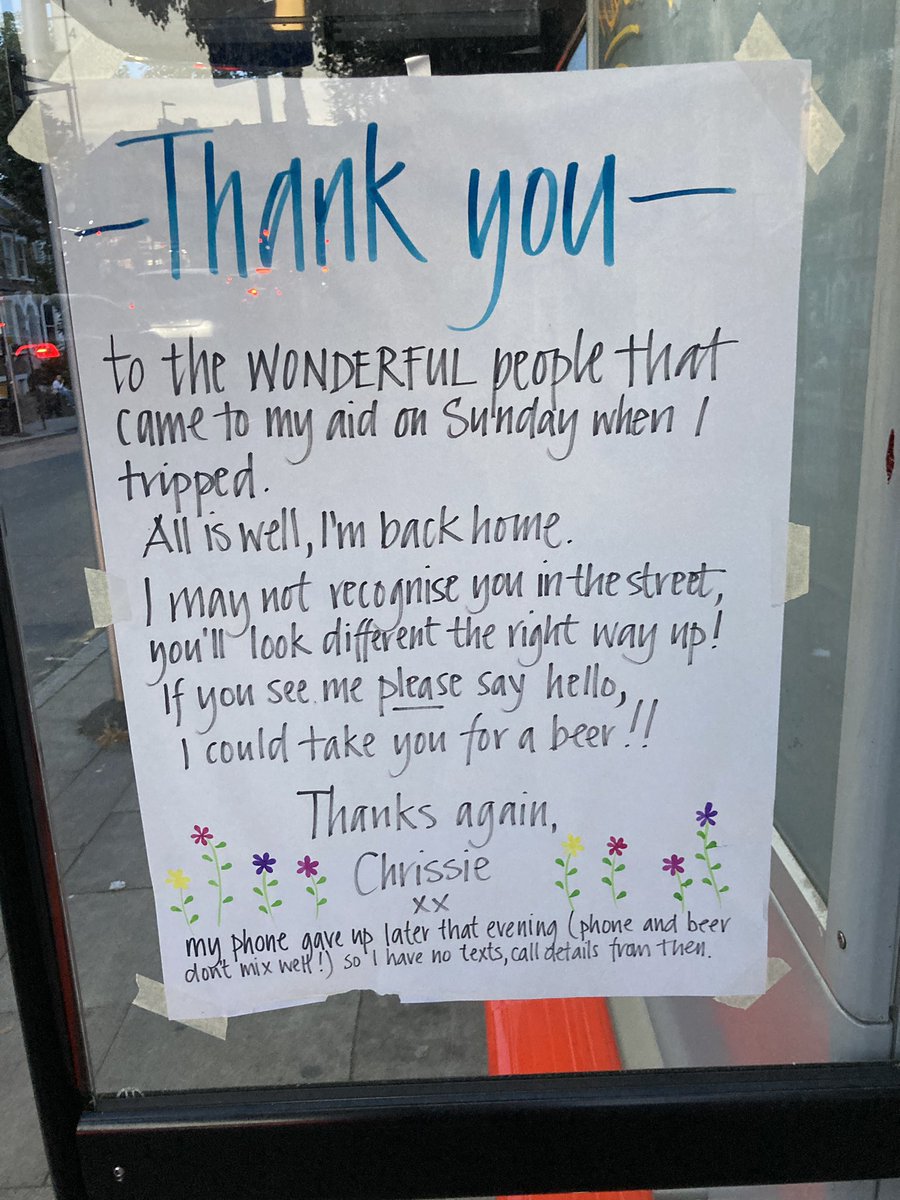 -Thank you-
to the WONDERFUL people that
came to my aid on Sunday when I
tripped.
All is well, I'm back home.
I may not recognise you in the street,
you'll look different the right way up!
If you see me please say hello,
I could take you for a beer!!
Thanks again,
Chrissie
xx
my phone gave up later that evening (phone and beer
don't mix well!) so I have no texts, call details from then.